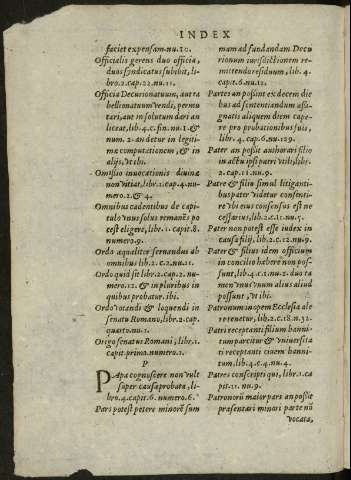 INDEX
faciet expensam. nu. 10.
Officialis gerens duo officia,
duos syndicatus subibit, li-
bro. 2. cap. 22. nu. 11.
Officia Decurionatuum, aut ta
bellionatuum vendi, permu
tari, aut in solutum dari an
liceat, lib. 4. c. fin. nu. 1. &
num. 2. an detur in legiti-
ma computationem, & in
alijs, vt ibi.
Omissio inuocationis diuinæ
non vitiat, libr. 2. cap. 4. nu-
mero. 2. & 4.
Omnibus cadentibus de capi-
tulo vnus solus remanẽs po
test eligere, libr. 1. capit. 8.
numero. 9.
Ordo æqualiter seruandus ab
omnibus lib. 2. c. 2. nu. 11.
Ordo quid sit libr. 2. cap. 2. nu-
mero. 12. & in pluribus in
quibus probatur. ibi.
Ordo votendi & loquendi in
senatu Romano, libr. 2. cap.
quarto. nu. 1.
Origo senatus Romani, libr. 1.
capit. primo. numero. 1.
P
PApa cognoscere non vult
super causa probata, li-
bro. 4. capit. 6. numero. 6.
Pars potest petere minorẽ sum
mam ad fundandam Decu
rionum iurisdictionem re-
mittendo residuum, lib. 4.
cap. 6. nu. 12.
Partes an possint ex decem die
bus ad sententiandum assi-
gnatis aliquem diem cape-
re pro probationibus suis,
libr. 4. cap. 6. nu. 129.
Pater an possit authorari filio
in actu ipsi patri vtili, libr.
2. cap. 11. nu. 9.
Patre & filio simul litiganti-
bus pater videtur consenti-
re vbi eius consensus est ne
cessarius, lib. 2. c. 11. nu. 5.
Pater non potest esse index in
causa filij, lib. 2. c. 12. nu. 9.
Pater & filius idem officium
in concilio habere non pos-
sunt, lib. 4. c. 1. nu. 2. duo ta
men vnus vnum alius aliud
possunt, vt ibi.
Patronum inopem Ecclesia ale
re tenetur, lib. 2. c. 18. n. 32.
Patri receptanti filium banni-
tum parcitur & vniuersita
ti receptanti ciuem banni-
tum, lib. 4. c. 4. nu. 4.
Patres conscripti qui, libr. 1. ca
pit. 11. nu. 9.
Patronorũ maior pars an possit
præsentari minori parte nõ
vocata,